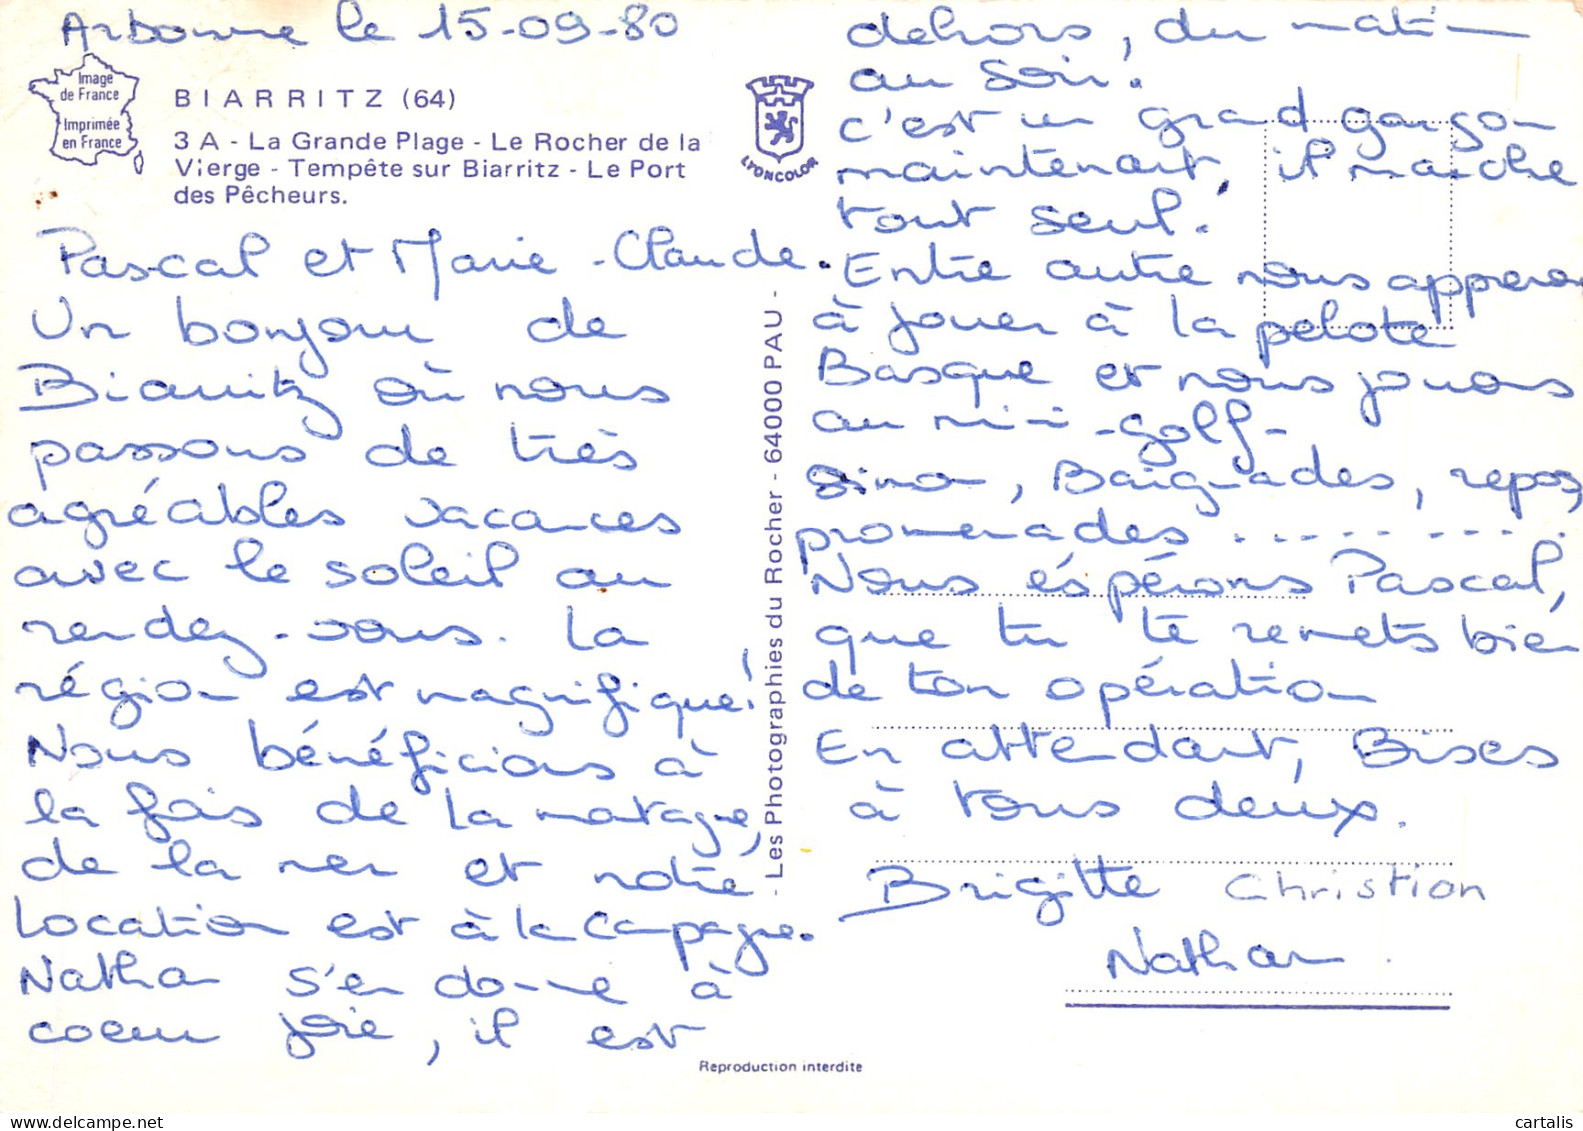 Arbonne le 15-09-80
Image
de France
Imprimée
en France
BIARRITZ (64)
3 A - La Grande Plage - Le Rocher de la
Vierge - Tempête sur Biarritz - Le Port
des Pêcheurs.
LYONCOLOR
Pascal et Marie-Claude.
Un bonjour de
Biarritz où nous
passons de très
agréables vacances
avec le soleil au
rendez-vous. La
région est magnifique!
Nous bénéficions à
la fois de la montagne,
de la mer et notre
location est à la campagne.
Nathan s'en donne à
coeur joie, il est
- Les Photographies du Rocher - 64000 PAU -
dehors, du matin
au soir!
c'est un grand garçon
maintenant, il marche
tout seul!
Entre autre nous apprenons
à jouer à la pelote
Basque et nous jouons
au mini-golf-
sinon, Baignades, repos,
promenades ..........
Nous éspérons Pascal,
que tu te remets bien
de ton opération
En attendant, Bises
à tous deux.
Brigitte Christian
Nathan.
Reproduction interdite
cartalis